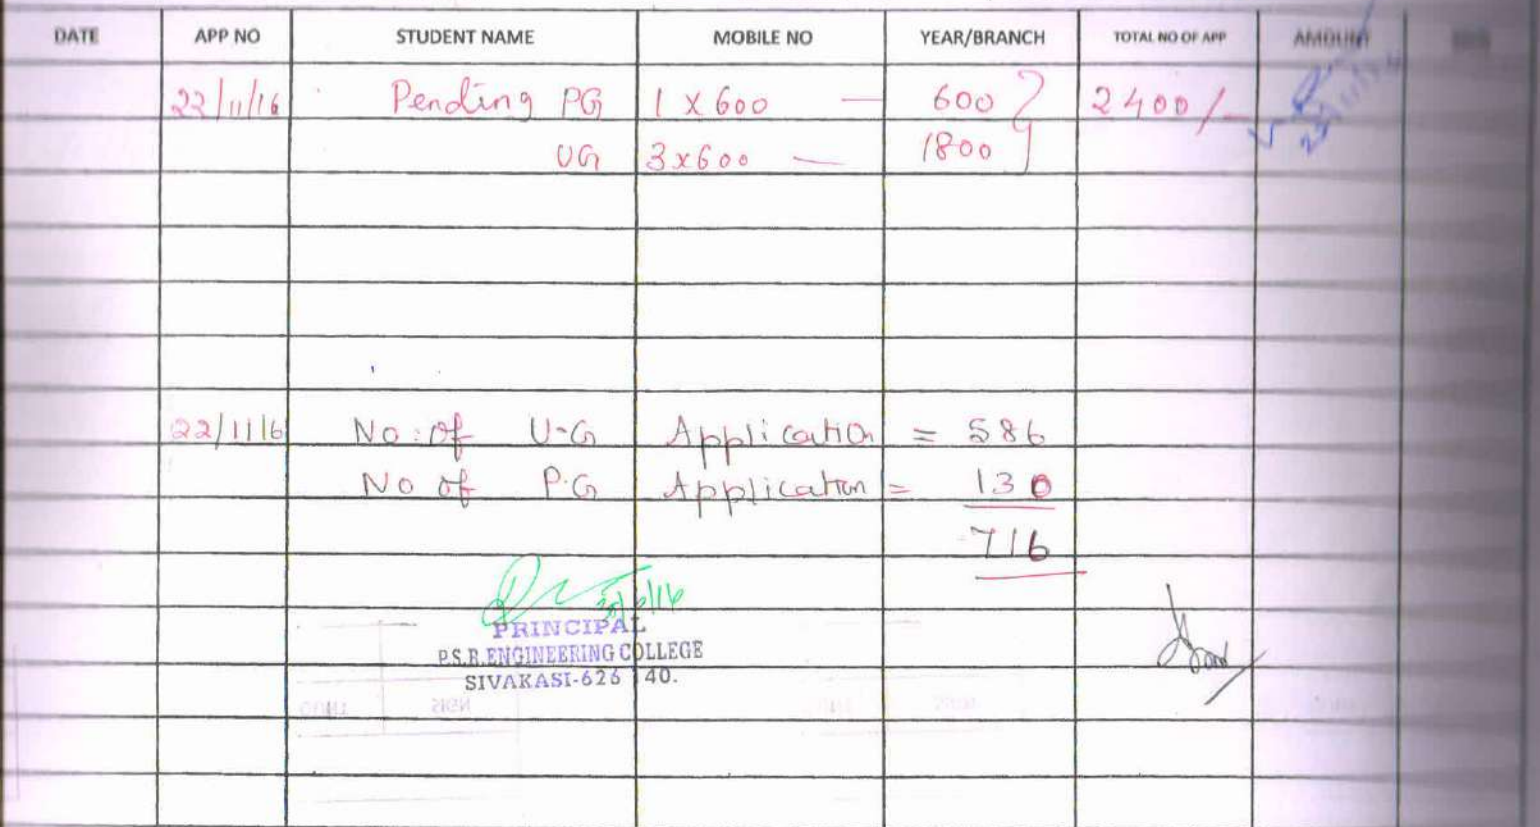 DATE APP NO STUDENT NAME MOBILE NO YEAR/BRANCH TOTAL NO OF APP AMOUNT
22/11/16 Pending PG 1 x 600 — 600 2400/-
UG 3x600 — 1800
22/11/6 No: of U-G Application = 586
No of P.G Application = 130
716
PRINCIPAL
P.S.R. ENGINEERING COLLEGE
SIVAKASI-626 140.